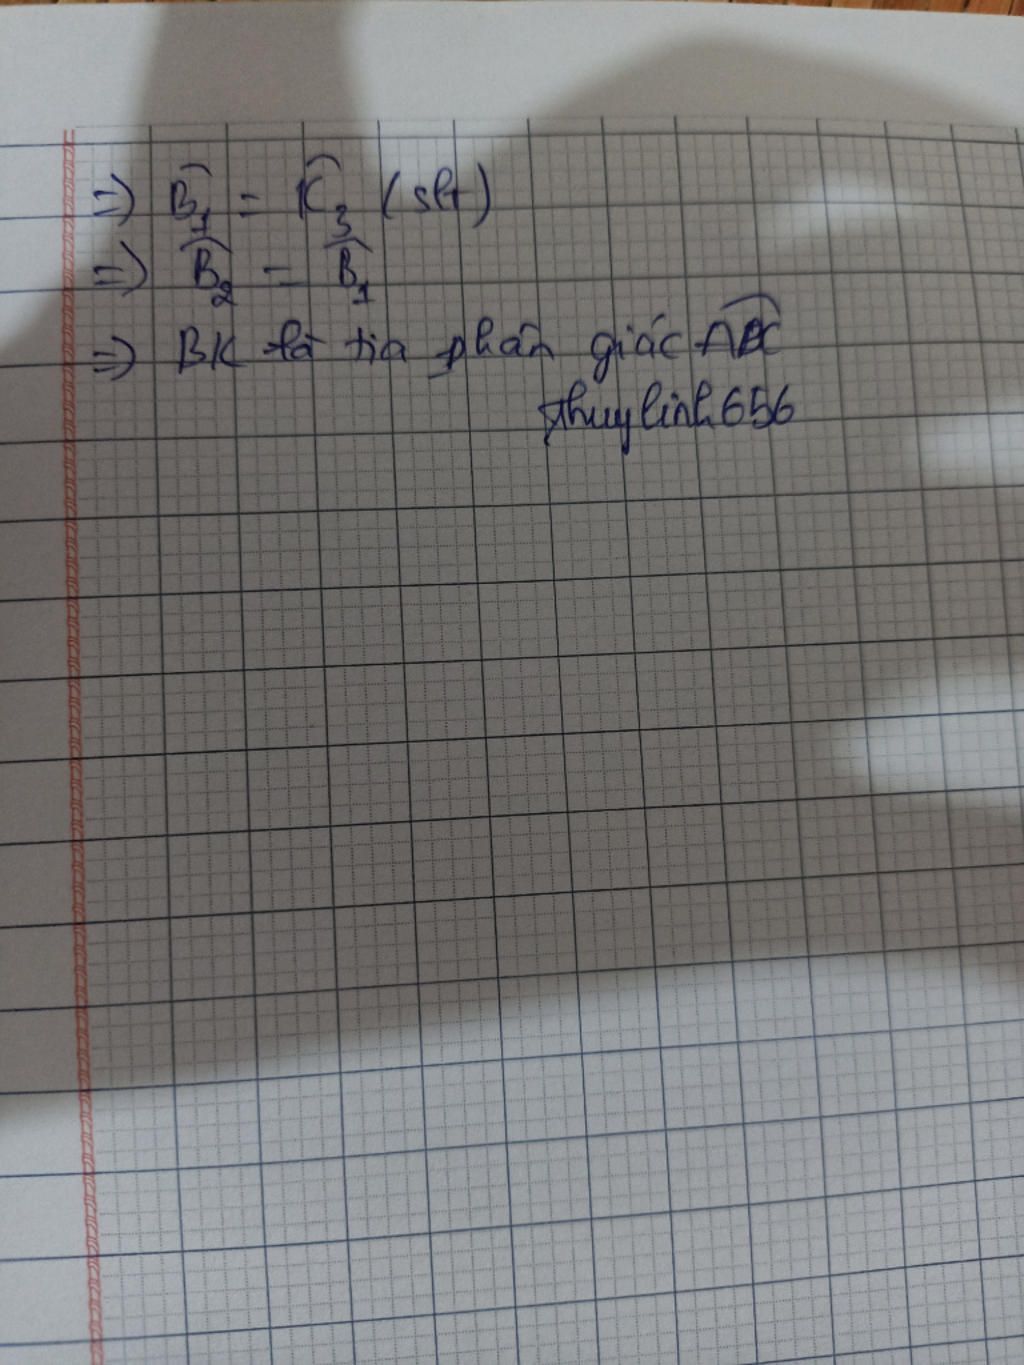 => B̂₁ = K̂₃ (slt)
=> B̂₂ = B̂₁
=> BK là tia phân giác ABC
thuylinh656